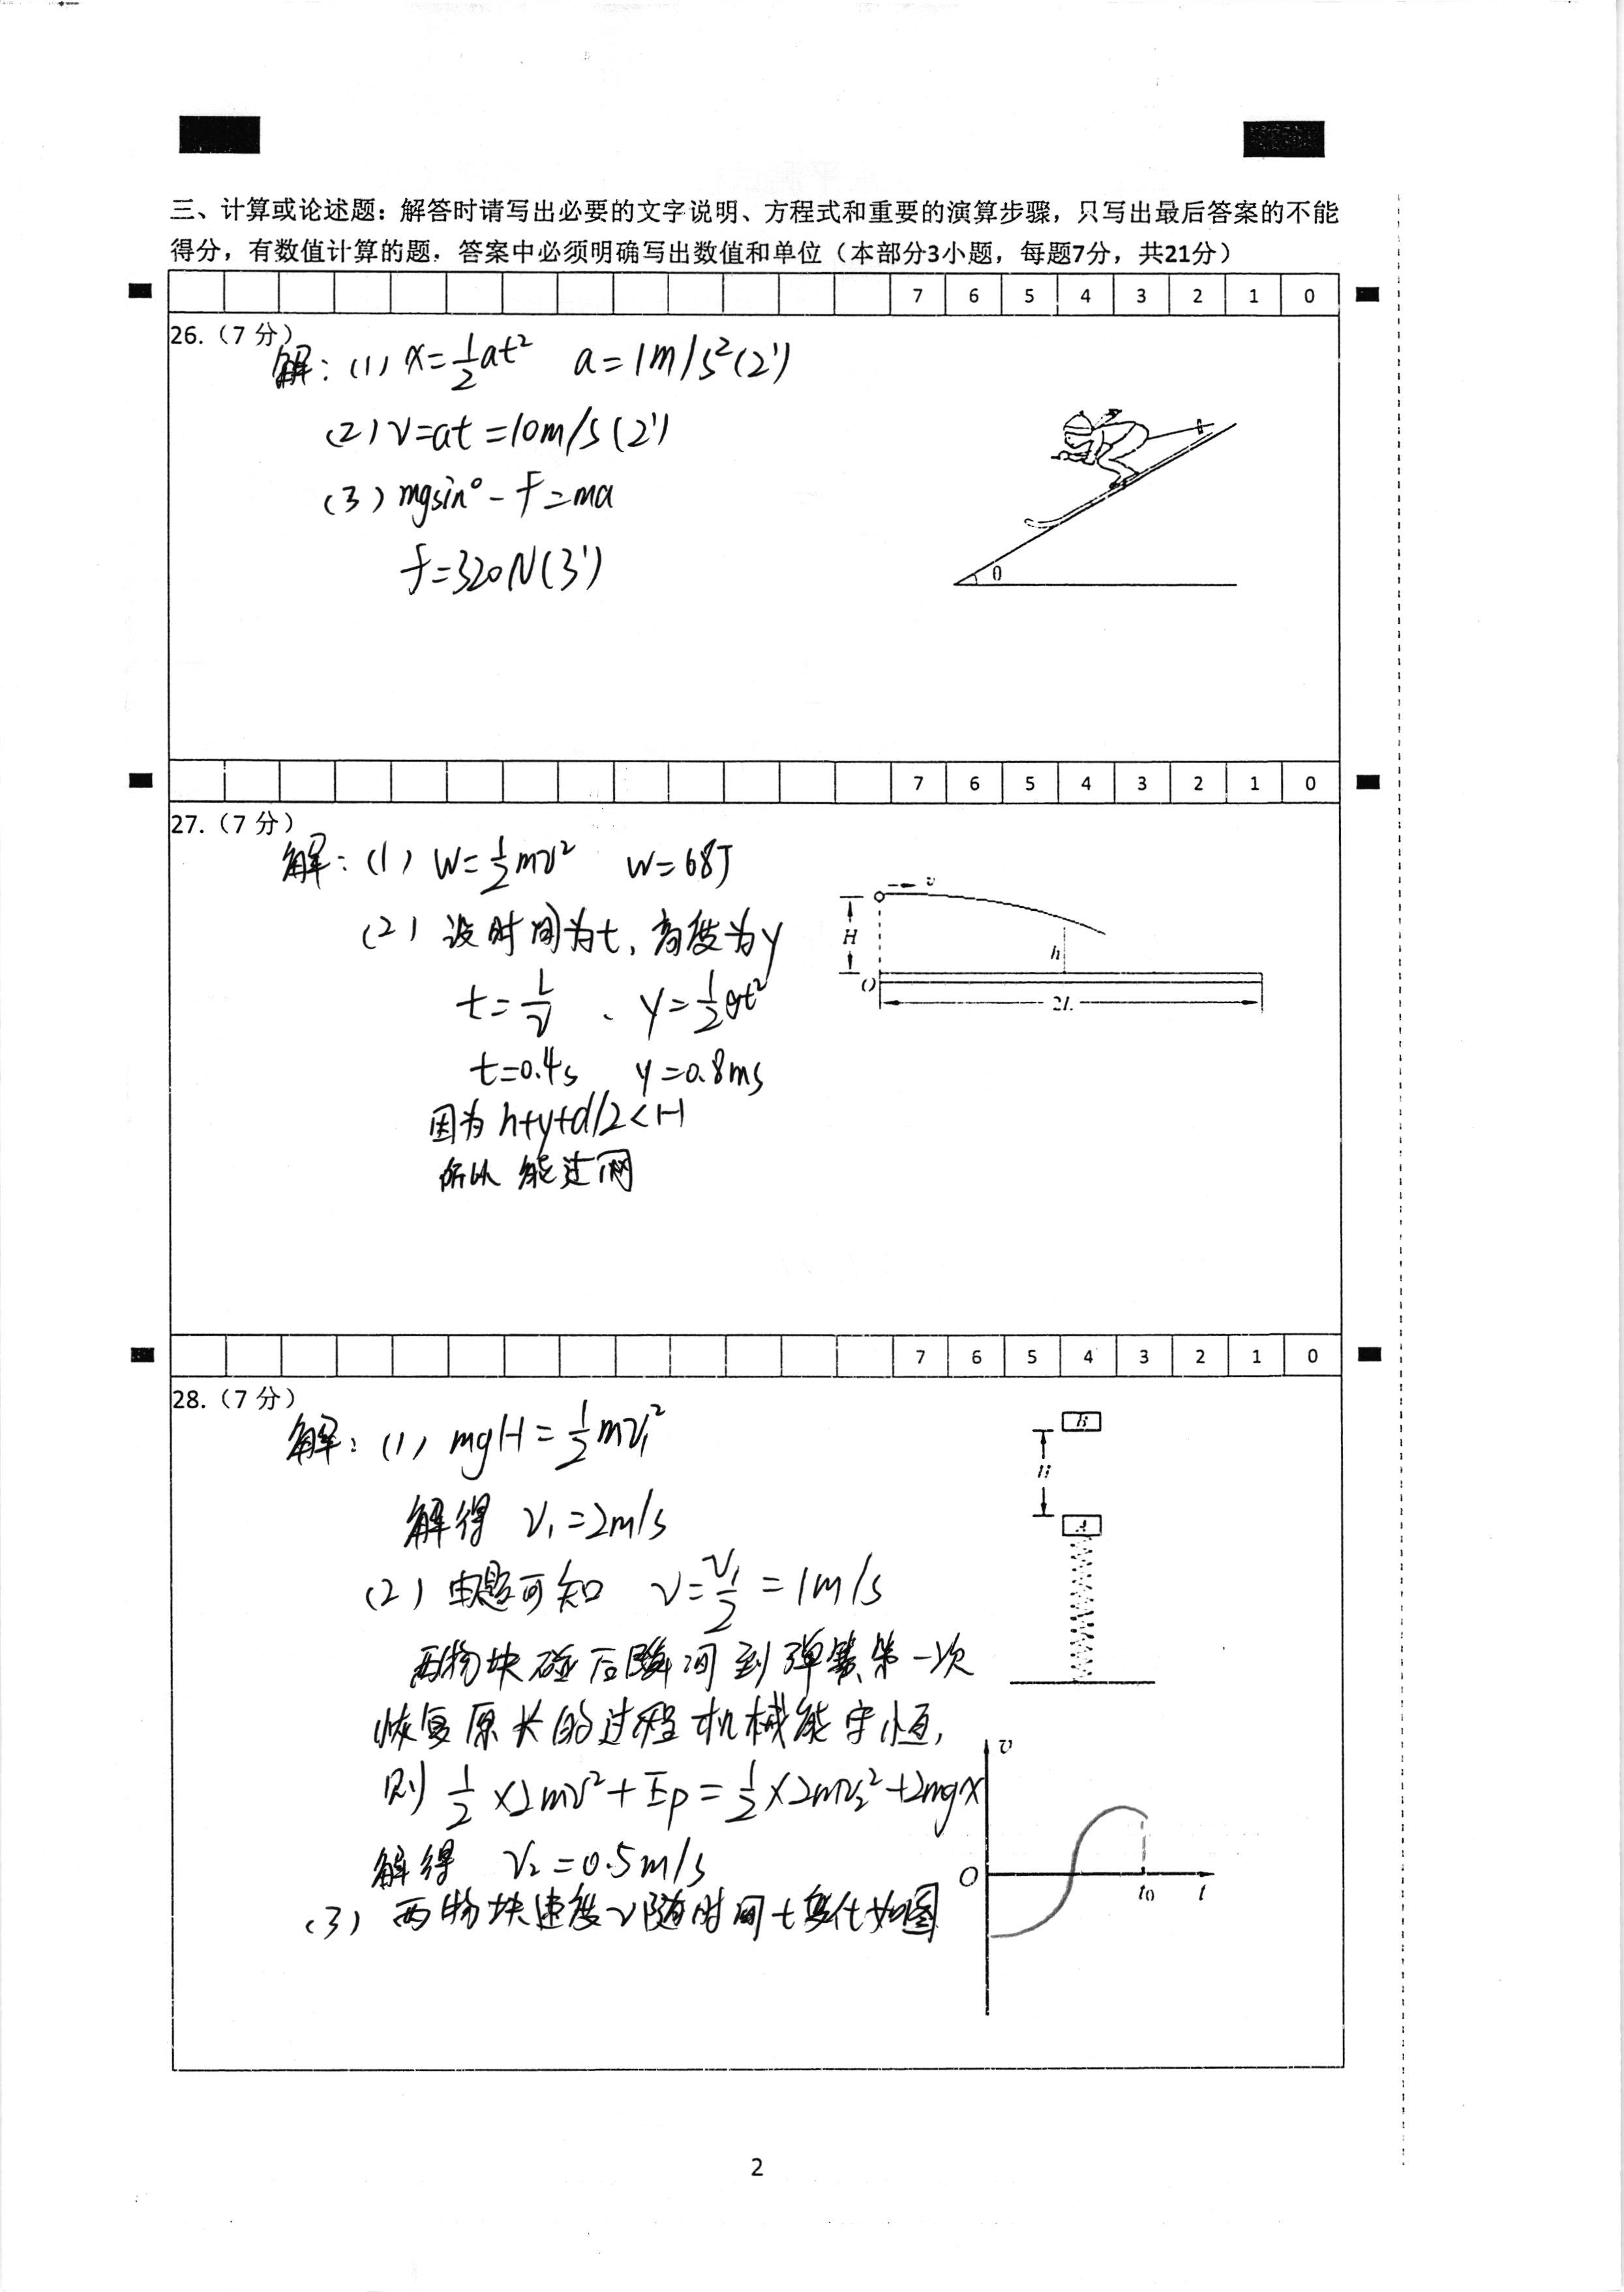 三、计算或论述题：解答时请写出必要的文字说明、方程式和重要的演算步骤，只写出最后答案的不能
得分，有数值计算的题．答案中必须明确写出数值和单位（本部分3小题，每题7分，共21分）
7 6 5 4 3 2 1 0
26.（7 分）
解：(1) x=½at² a=1m/s²(2')
(2) v=at=10m/s(2')
(3) mgsin°-f=ma
f=320N(3')
θ
7 6 5 4 3 2 1 0
27.（7 分）
解：(1) W=½mv² W=68J
(2) 设时间为t，高度为y
t=L/v 、y=½gt²
t=0.4s y=0.8ms
因为 h+y+d/2<H
所以 能过网
v
H
h
O
2L
7 6 5 4 3 2 1 0
28.（7 分）
解：(1) mgH=½mv₁²
解得 v₁=2m/s
(2) 由题可知 v=v₁/2=1m/s
两物块碰后瞬间到弹簧第一次
恢复原长的过程机械能守恒，
则 ½×2mv²+Ep=½×2mv₂²+2mgx
解得 v₂=0.5m/s
(3) 两物块速度v随时间t变化如图
B
H
A
v
O
t₀ t
2